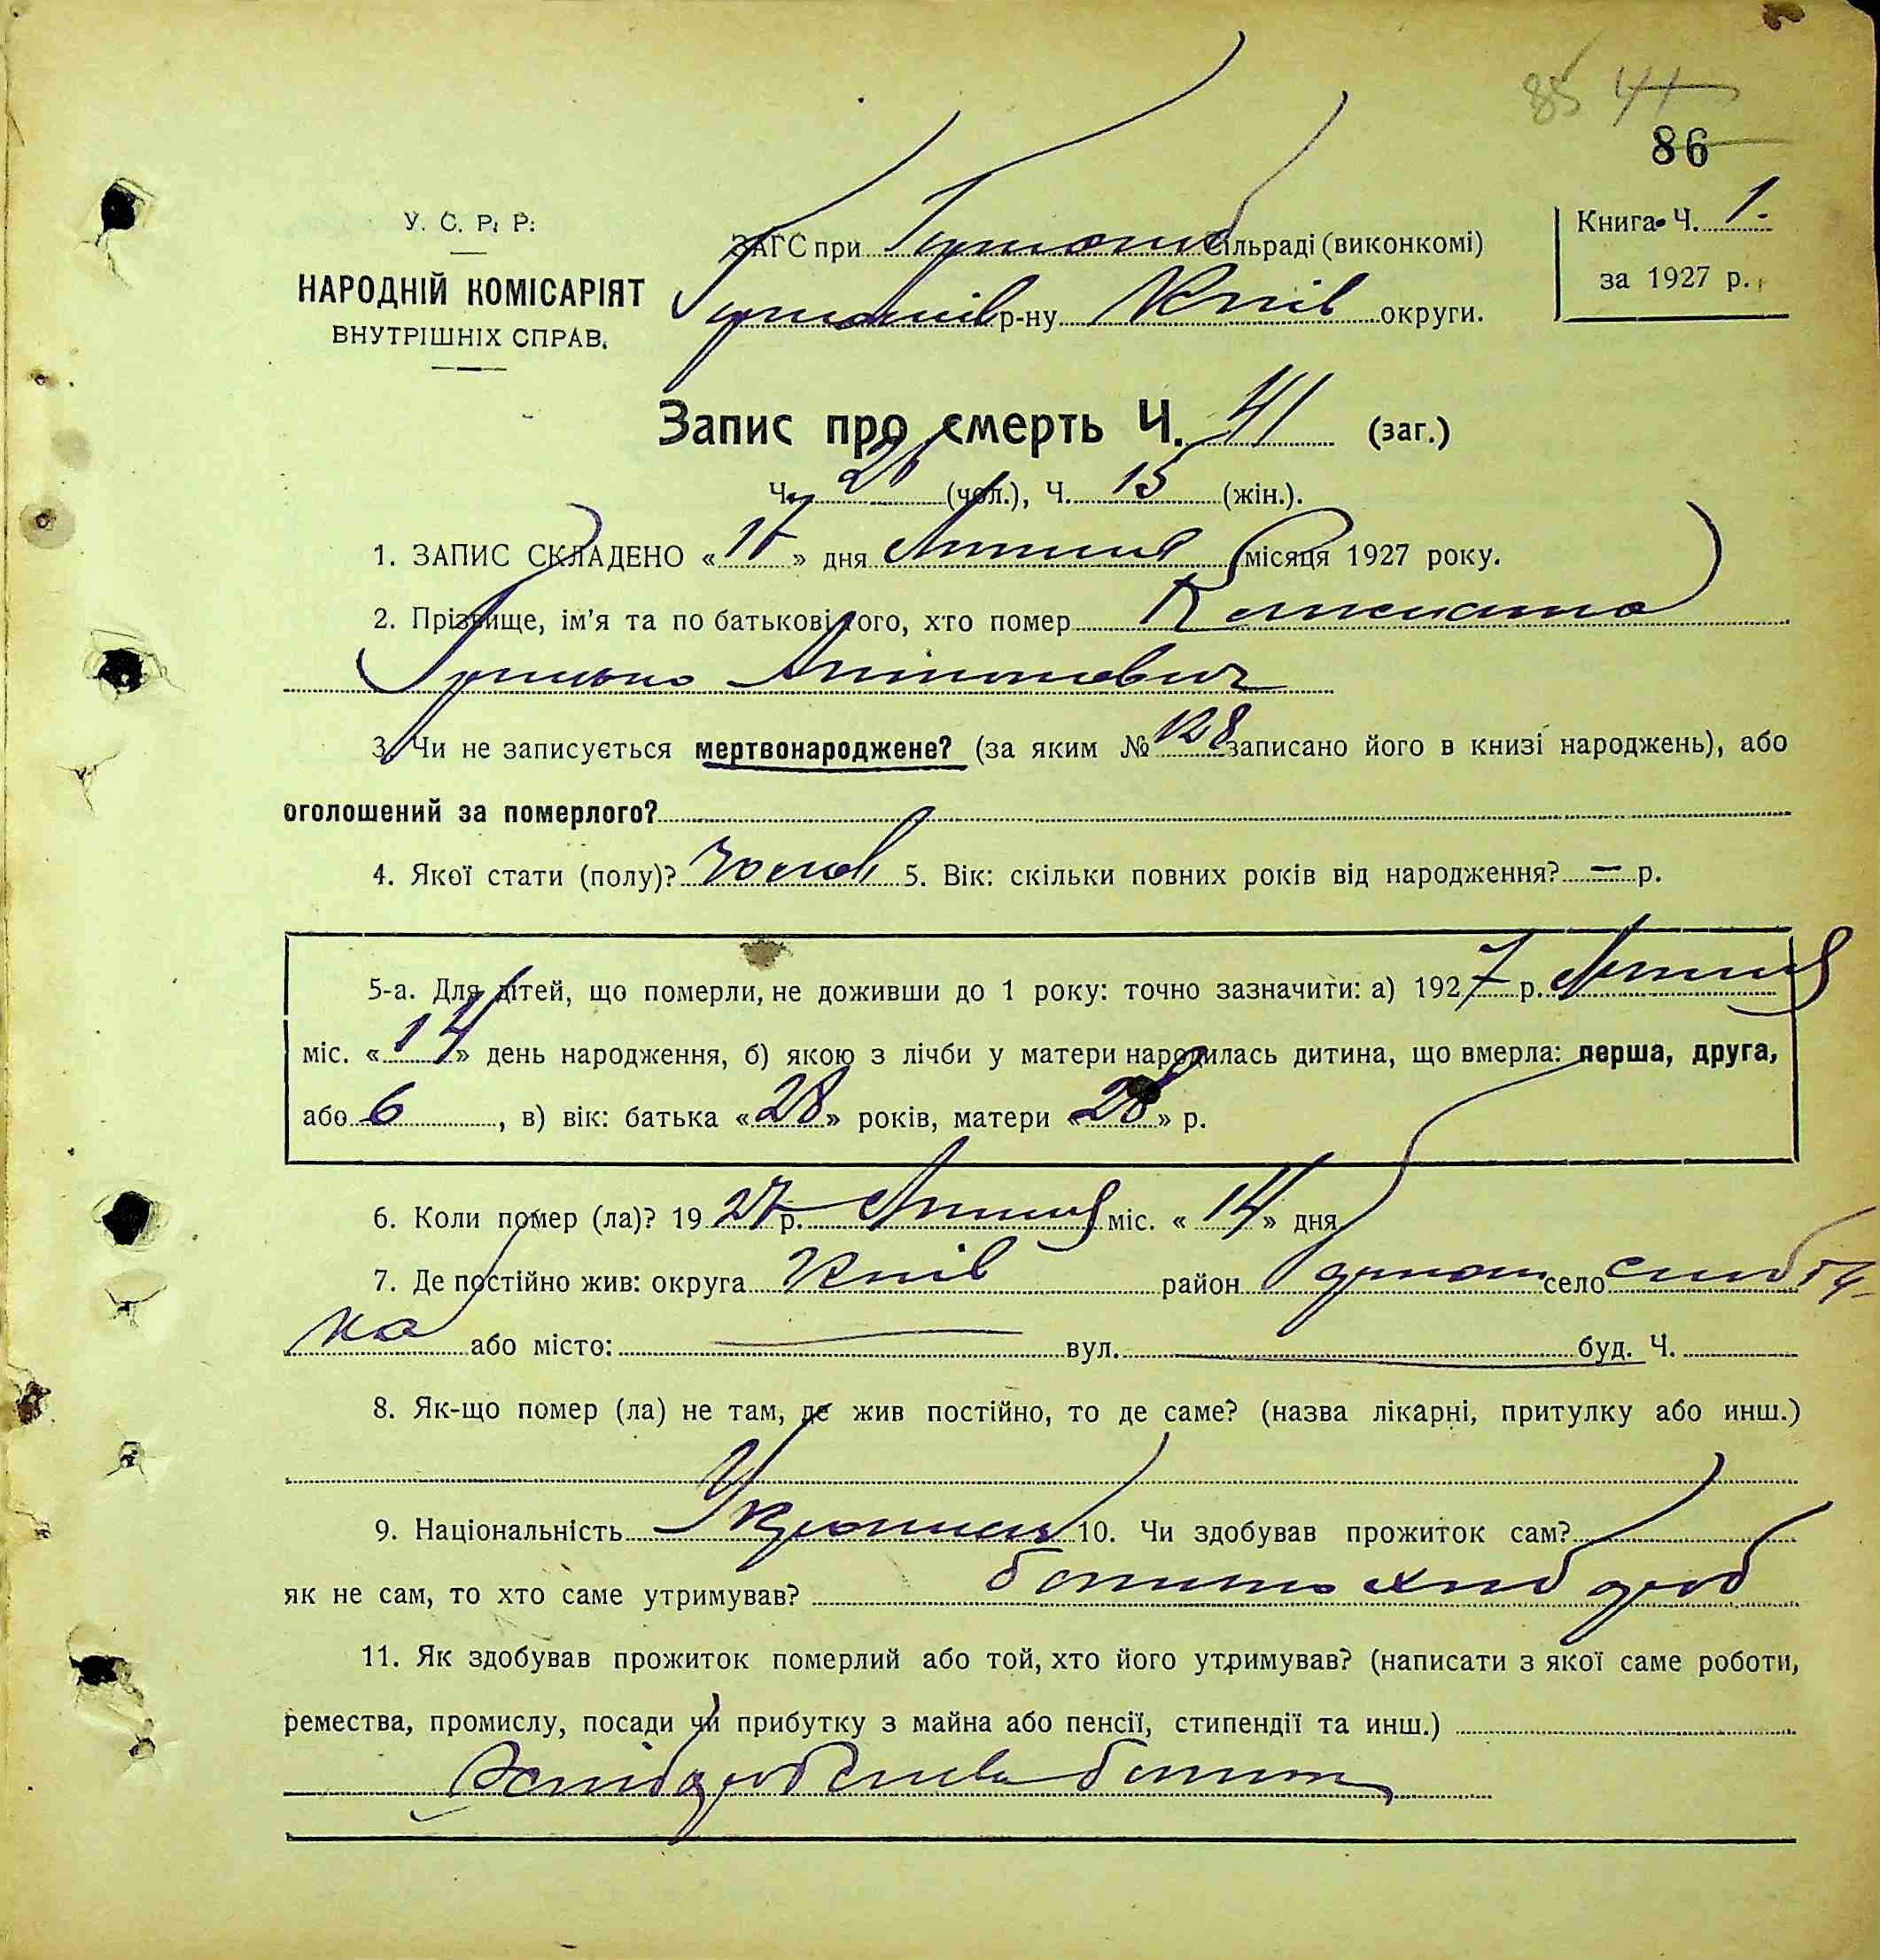 85 41
86
У. С. Р. Р.
НАРОДНІЙ КОМІСАРІЯТ
ВНУТРІШНІХ СПРАВ.
ЗАГС при Сільраді (виконкомі)
р-ну Київ округи.
Книга Ч. 1.
за 1927 р.
Запис про смерть Ч. 41 (заг.)
Ч. 26 (чол.), Ч. 15 (жін.).
1. ЗАПИС СКЛАДЕНО « » дня Липня місяця 1927 року.
2. Прізвище, ім'я та по батькові того, хто помер
Грицько Антонович
3. Чи не записується мертвонароджене? (за яким № 128 записано його в книзі народжень), або
оголошений за померлого?
4. Якої стати (полу)? чолов 5. Вік: скільки повних років від народження? – р.
5-а. Для дітей, що померли, не доживши до 1 року: точно зазначити: а) 1927 р. Липня
міс. «14» день народження, б) якою з лічби у матери народилась дитина, що вмерла: перша, друга,
або 6, в) вік: батька «28» років, матери «28» р.
6. Коли помер (ла)? 1927 р. Липня міс. «14» дня
7. Де постійно жив: округа Київ район село
ка або місто: вул. буд. Ч.
8. Як-що помер (ла) не там, де жив постійно, то де саме? (назва лікарні, притулку або инш.)
9. Національність Українець 10. Чи здобував прожиток сам?
як не сам, то хто саме утримував? батько хлібороб
11. Як здобував прожиток померлий або той, хто його утримував? (написати з якої саме роботи,
ремества, промислу, посади чи прибутку з майна або пенсії, стипендії та инш.)